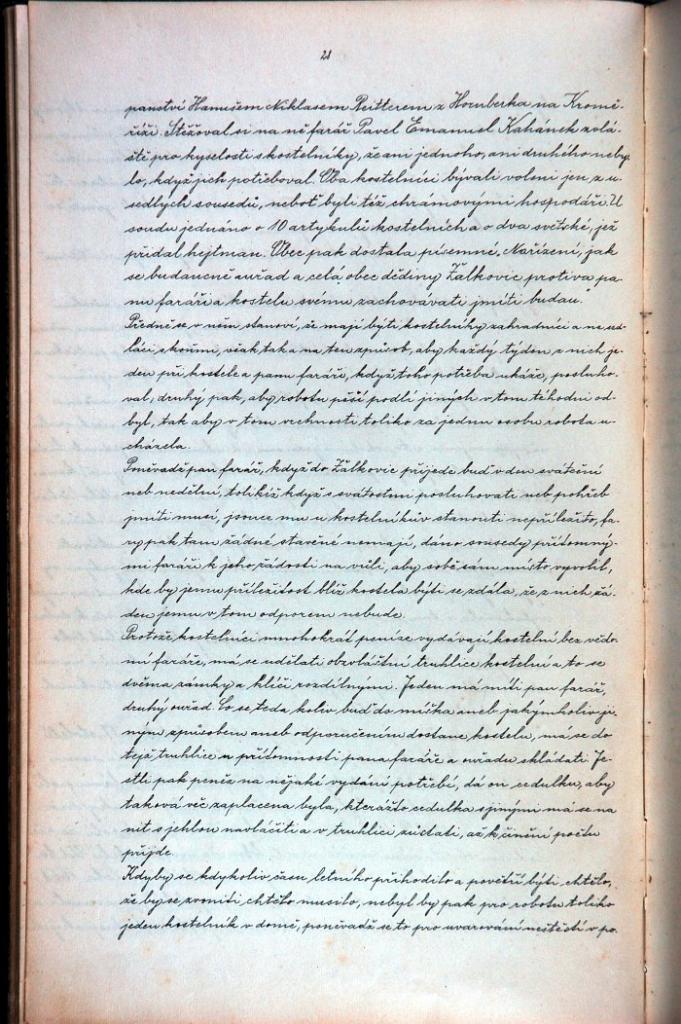 21
panství Hanušem Niklasem Reitterem z Hornberka na Kromě-
říži. Stěžoval si na ně farář Pavel Emanuel Kahánek zvlá-
ště pro kyselosti s kostelníky, že ani jednoho, ani druhého neby-
lo, když jich potřeboval. Oba kostelníci bývali voleni jen z u-
sedlých sousedů, neboť byli též chrámovými hospodáři. U
soudu jednáno o 10 artykulů kostelních a o dva světské, jež
přidal hejtman. Obec pak dostala písemné „Nařízení, jak
se budoucně ouřad a celá obec dědiny Žalkovic proti va pa-
nu faráři a kostelu svému zachovávati jmíti budou."
Předně se v něm stanoví, že mají býti kostelníky zahradníci a ne sed-
láci s koňmi, však tak a na ten způsob, aby každý týden z nich je-
den při kostele a panu faráři, když toho potřeba ukáže, posluho-
val, druhý pak, aby robotu pěší podlé jiných v tom téhodni od-
byl, tak aby v tom vrchnosti toliko za jednu osobu robota u-
cházela.
Poněvadž pan farář, když do Žalkovic přijede buď v den sváteční
neb nedělní, tolikéž když s svátostmi posluhovati neb pohřeb
jmíti musí, jsouce mu u kostelníkův stanouti nepříležito, fa-
ry pak tam žádné stavěné nemají, dáno sousedy přítomný-
mi faráři k jeho žádosti na vůli, aby sobě sám místo vyvolil,
kde by jemu příležitost blíž kostela býti se zdála, že z nich žá-
den jemu v tom odporem nebude.
Protože kostelníci mnohokrát peníze vydávají kostelní bez vědo-
mí faráře, má se udělati obzvláštní truhlice kostelní a to se
dvěma zámky a klíči rozdílnými. Jeden má míti pan farář,
druhý ouřad. Co se teda koliv buď do míška aneb jakýmkoliv ji-
ným způsobem aneb odporučením dostane kostelu, má se do
tejž truhlice u přítomnosti pana faráře a ouřadu skládati. Je-
stli pak peněz na nějaké vydání potřebí, dá on cedulku, aby
taková věc zaplacena byla, kterážto cedulka s jinými má se na
nit s jehlou navláčiti a v truhlici zůstati, až k činění počtu
přijde.
Kdyby se kdykoliv času letního přihodilo a povětří býti chtělo,
že by se zvoniti chtělo musilo, nebyl by pak pro robotu toliko
jeden kostelník v domě, poněvadž se to pro uvarování neštěstí v po-